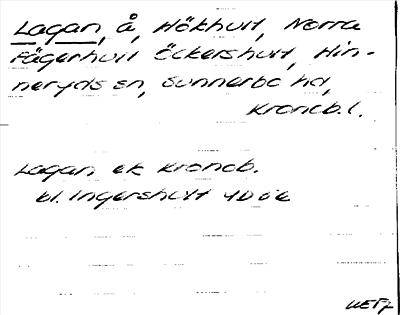 Lagan, å, Hökhult, Norra
Fägerhult Öckershult, Hin-
neryds sn, Sunnerbo hd,
Kronob. l.
Lagan ek Kronob.
bl. Ingershult 4D6e